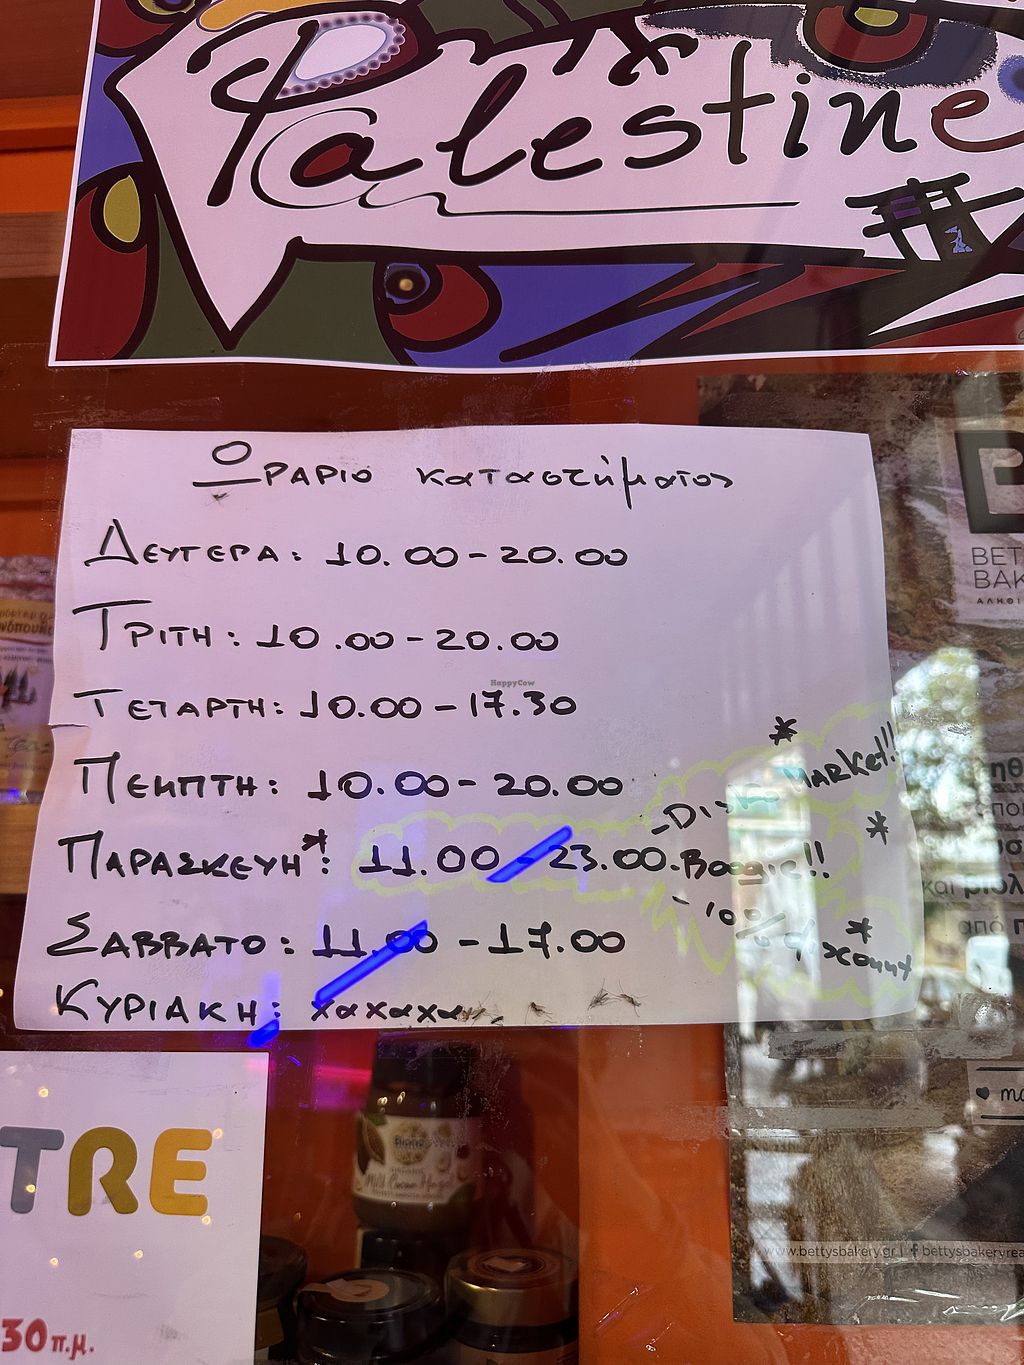 Palestine
Ωραριο καταστήματος
Δευτερα: 10.00-20.00
Τριτη: 10.00-20.00
Τεταρτη: 10.00-17.30
HappyCow
Πεμπτη: 10.00-20.00
*
Market!!
Παρασκευη*: 11.00-23.00.Boogie!!
*
-10%
*
Σαββατο: 11.00-17.00
Κυριακη: χαχαχα
BET
BAK
και
από
TRE
30 π.μ.
www.bettysbakery.gr | f bettysbakeryrea